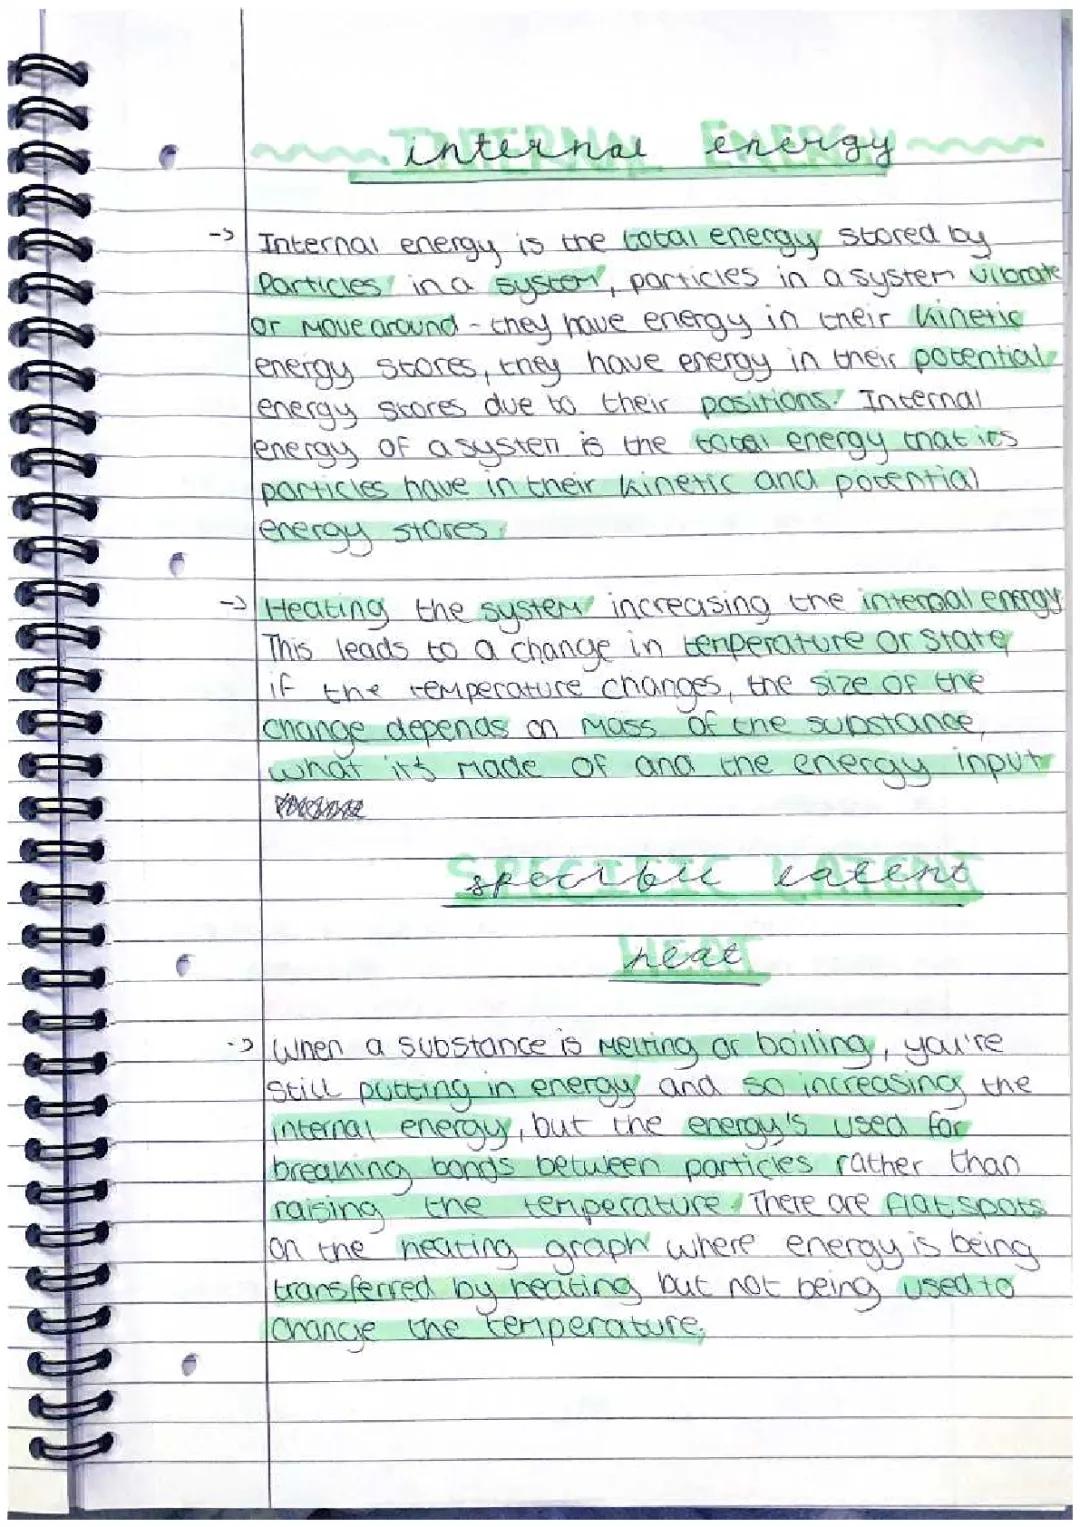 internal energy
-> Internal energy is the total energy stored by
Particles in a system, particles in a system vibrate
or move around - they have energy in their kinetic
energy stores, they have energy in their potential
energy stores due to their positions. Internal
energy of a system is the total energy that its
particles have in their kinetic and potential
energy stores.
-> Heating the system increasing the internal energy
This leads to a change in temperature or state,
if the temperature changes, the size of the
change depends on mass of the substance,
what it's made of and the energy input
specific latent
heat
-> When a substance is melting or boiling, you're
still putting in energy and so increasing the
internal energy, but the energy's used for
breaking bonds between particles rather than
raising the temperature. There are flat spots
on the heating graph where energy is being
transferred by heating but not being used to
change the temperature.